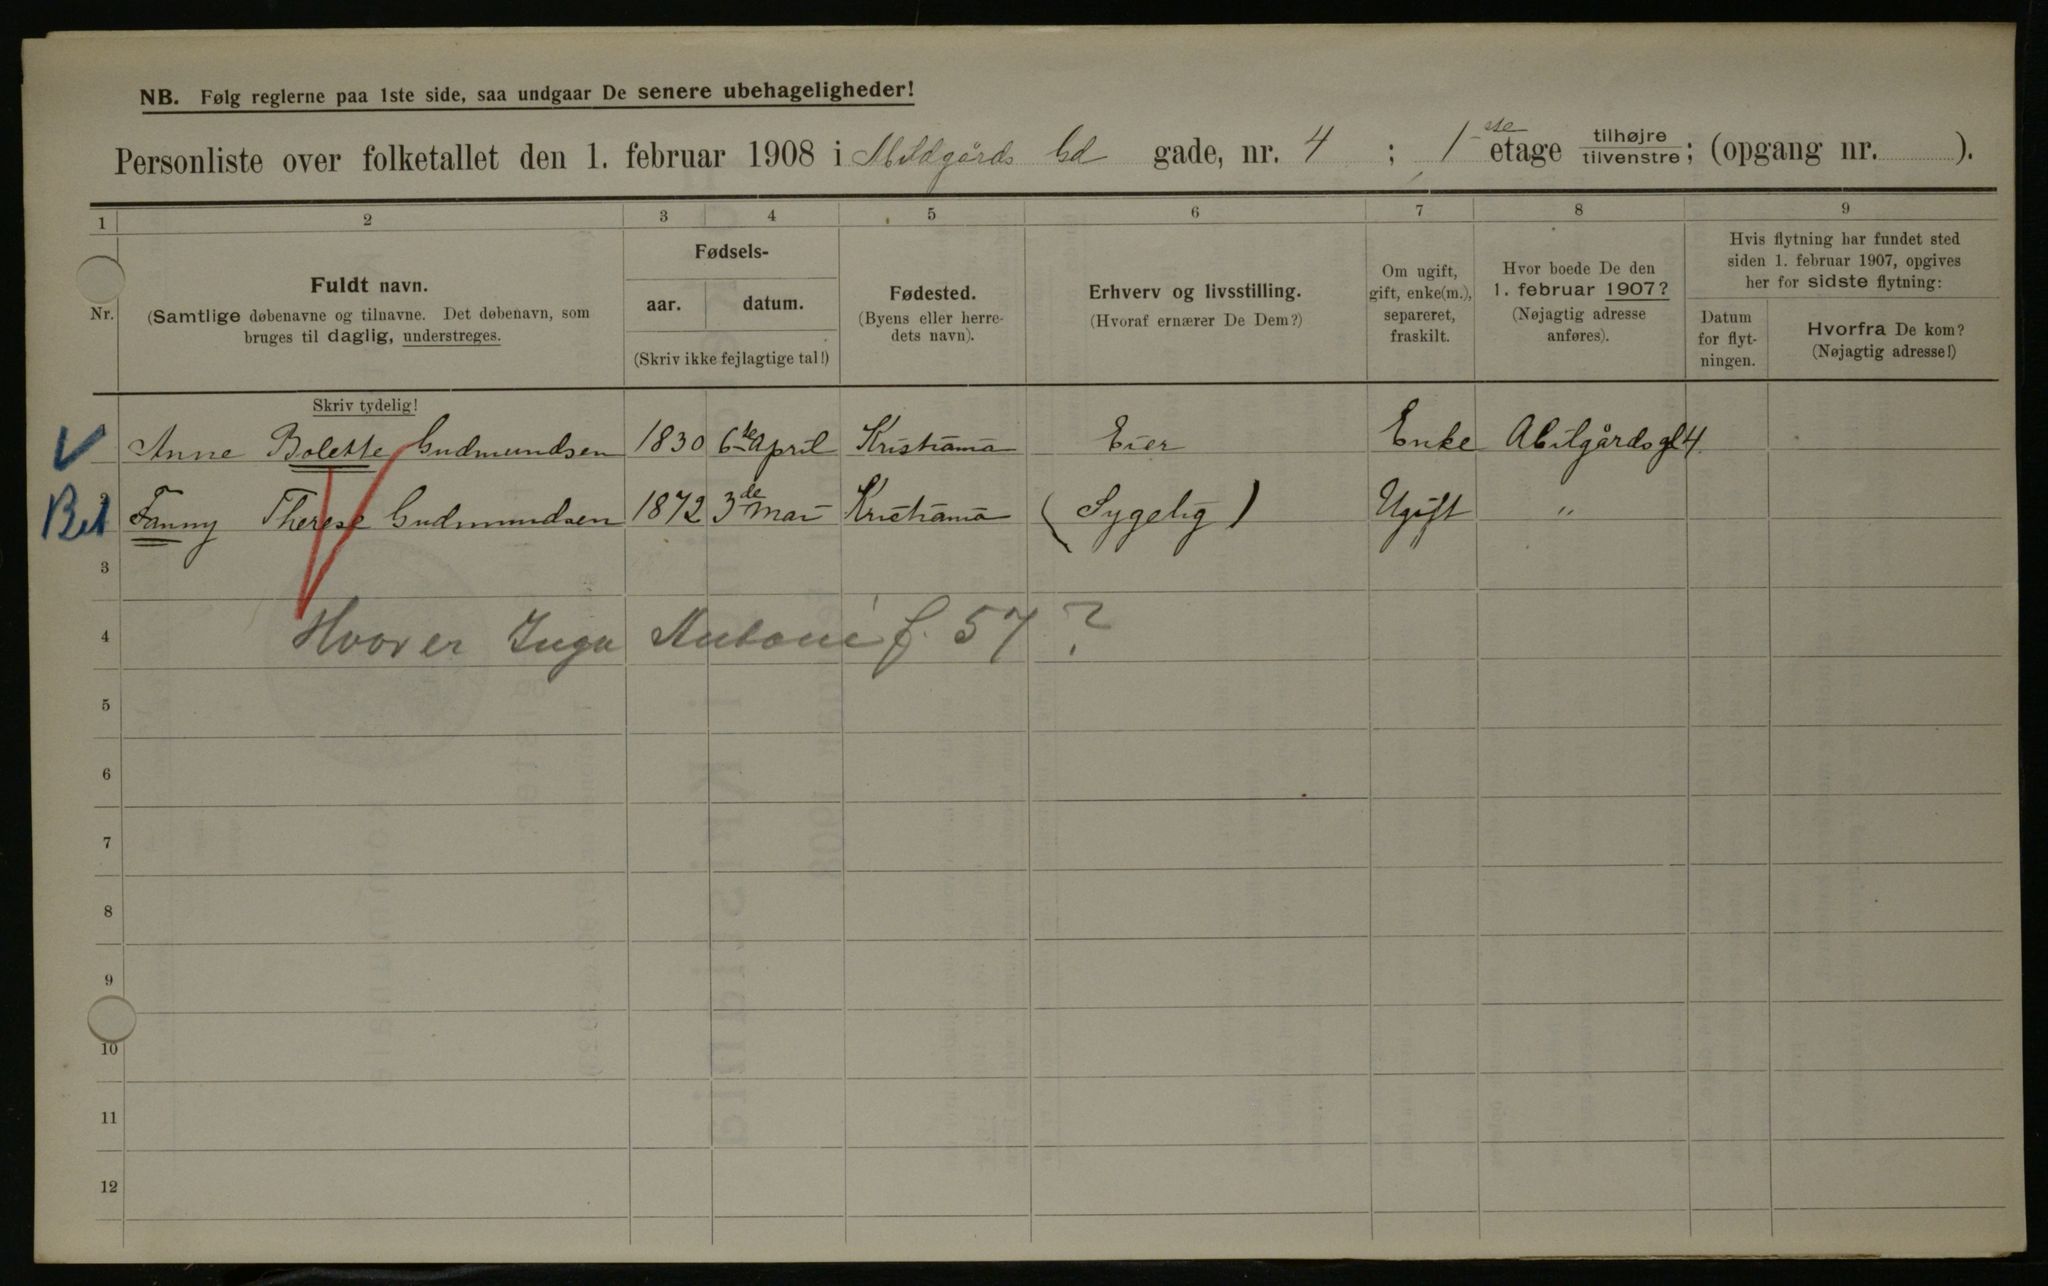 NB. Følg reglerne paa 1ste side, saa undgaar De senere ubehageligheder!
Personliste over folketallet den 1. februar 1908 i Abildgårds Gd gade, nr. 4 ; 1sse etage tilhøjre/tilvenstre; (opgang nr. ).
1 2 3 4 5 6 7 8 9
Nr.
Fuldt navn.
(Samtlige døbenavne og tilnavne. Det døbenavn, som
bruges til daglig, understreges.
Skriv tydelig!
Fødsels-
aar. datum.
(Skriv ikke fejlagtige tal!)
Fødested.
(Byens eller herre-
dets navn).
Erhverv og livsstilling.
(Hvoraf ernærer De Dem?)
Om ugift,
gift, enke(m.),
separeret,
fraskilt.
Hvor boede De den
1. februar 1907?
(Nøjagtig adresse
anføres).
Hvis flytning har fundet sted
siden 1. februar 1907, opgives
her for sidste flytning:
Datum
for flyt-
ningen.
Hvorfra De kom?
(Nøjagtig adresse!)
Anne Bolette Gudmundsen 1830 6te April Kristiania Eier Enke Abilgårdsgd 4
Bet 2 Fanny Therese Gudmundsen 1872 3de Mai Kristiania (Sygelig) Ugift "
3
4 Hvor er Inga Antonie f. 57?
5
6
7
8
9
10
11
12